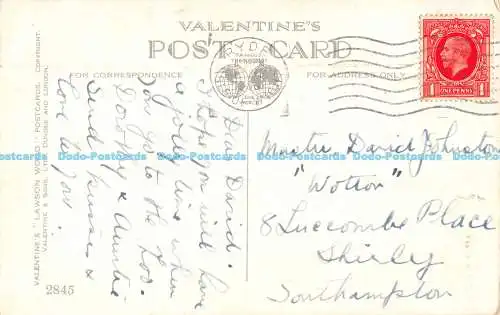 VALENTINE'S
POST CARD
FOR CORRESPONDENCE
FOR ADDRESS ONLY
ONE PENNY
Dear David.
I hope you will have
a jolly time when
you go to the Zoo.
Dorothy & Auntie
Send kisses &
love to you.
Master David Johnston
"Wotton"
8 Luccombe Place
Shirley
Southampton
VALENTINE'S "LAWSON WOOD" POSTCARDS. COPYRIGHT.
VALENTINE & SONS, LTD. DUNDEE AND LONDON.
2845
Dodo-Postcards Dodo-Postcards Dodo-Postcards Dodo-Postcards Dodo-Postcards Dodo-Postcards